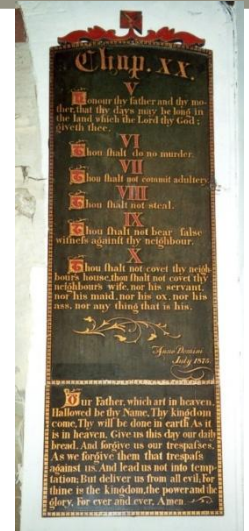 Chap. XX.
V
Honour thy father and thy mo-
ther, that thy days may be long in
the land which the Lord thy God;
giveth thee.
VI
Thou ſhalt do no murder.
VII
Thou ſhalt not commit adultery.
VIII
Thou ſhalt not steal.
IX
Thou ſhalt not bear false
witneſs againſt thy neighbour.
X
Thou ſhalt not covet thy neigh-
bour's house, thou ſhalt not covet thy
neighbour's wife, nor his servant,
nor his maid, nor his ox, nor his
ass, nor any thing that is his.
Anno Domini
July
Our Father, which art in heaven,
Hallowed be thy Name, Thy kingdom
come, Thy will be done in earth As it
is in heaven. Give us this day our daily
bread, And forgive us our treſpaſses,
As we forgive them that treſpaſs
against us. And lead us not into temp-
tation: But deliver us from all evil, For
thine is the kingdom, the power and the
glory, For ever and ever, Amen